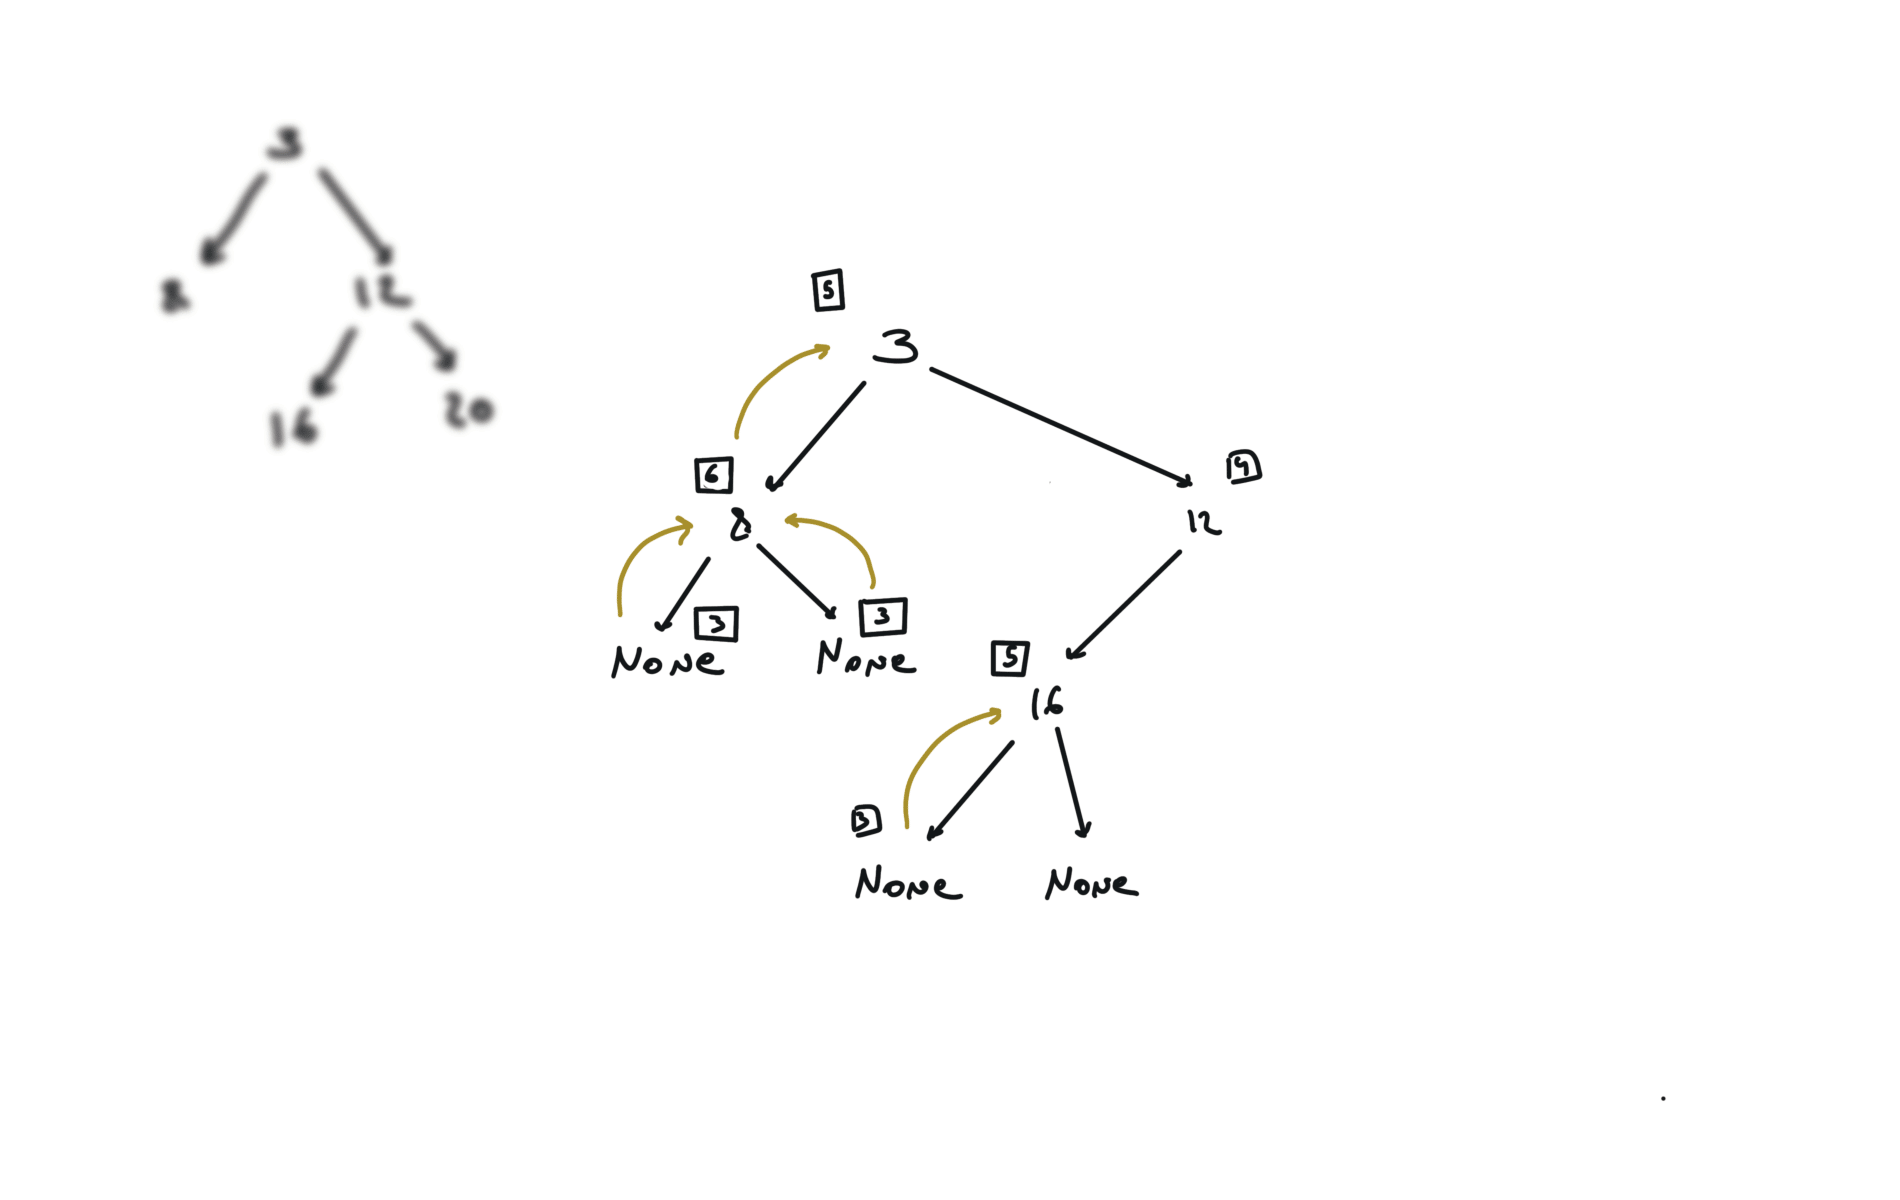 3
8 12
16 20
5
3
6
8
12
3 3
None None
5
16
3
None None